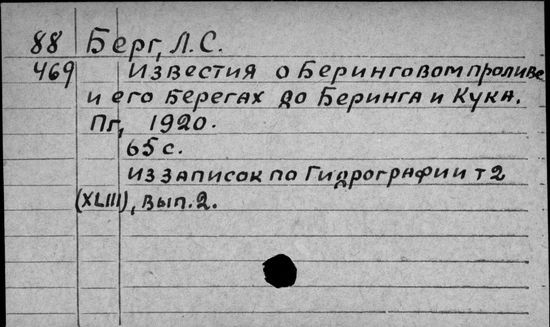 88 Берг, Л.С.
469 Известия о Беринговом проливе
и его берегах до Беринга и Кука.
Пг, 1920.
65 с.
Из записок по Гидрографии т 2
(XLIII), вып. 2.